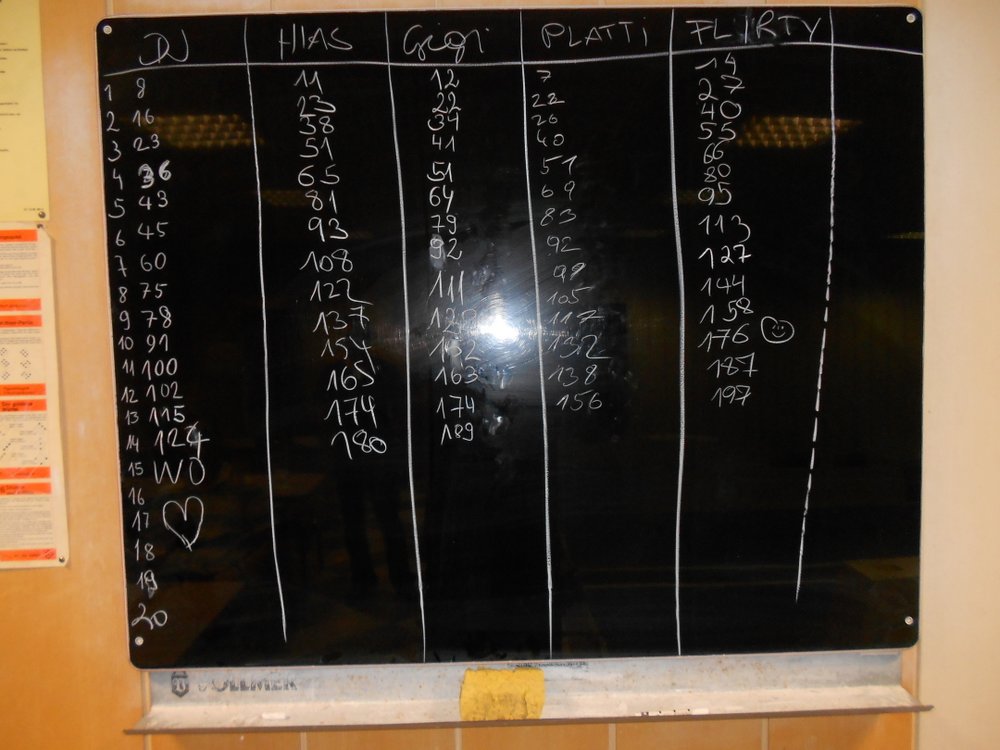 DJ HIAS Gigi PLATTI FLIRTY
1 8 11 12 7 14
2 16 23 22 22 27
3 23 38 34 26 40
4 36 51 41 40 55
5 43 65 51 51 66
6 45 81 64 69 80
7 60 93 79 83 95
8 75 108 92 92 113
9 78 122 111 99 127
10 91 137 105 144
11 100 154 117 158
12 102 165 163 132 176
13 115 174 174 138 187
14 124 180 189 156 197
15 WO
16
17
18
19
20
VOLLMER